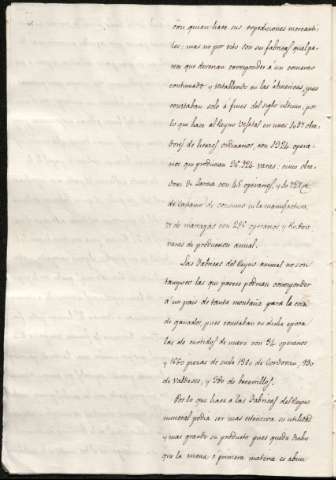 con quien hace sus expediciones mercanti-
les; mas no por esto son sus fabricas qual pa-
rece que deverian corresponder á un comercio
continuado y establecido en las Américas, pues
constaban solo á fines del siglo ultimo, por
lo que hace al Reyno Vejetal en unos 1487 obra-
dores de lienzos ordinarios, con 1924 opera-
rios que producian varas; cinco obra-
dores de Lonas con 45 operarios, y
de cáñamo de consumo en la manufactura
de con 296 operarios y
varas de produccion anual.
Las Fabricas del Reyno animal no son
tampoco las que parece podrian corresponder
á un pais de tanta montaña para la cria
de ganados, pues constaban en dicha epoca
las de curtidos de cuero con 54 operarios
y 1680 piezas de suela 1970 de Cordovan, 930
de Valdeses, y 580 de becerrillos.
Por lo que hace á las Fabricas del Reyno
mineral podia ser mas extensiva su utilidad
y mas grande su producto pues queda dicho
que la mena ó primera materia es abun